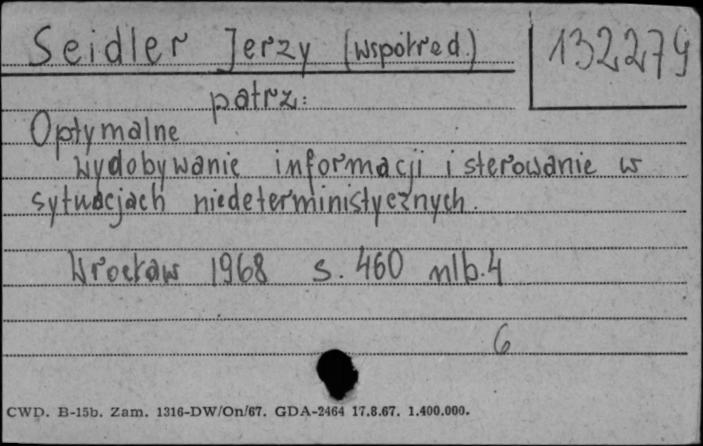 Seidler Jerzy (współred.) 132279
patrz:
Optymalne
wydobywanie informacji i sterowanie w
sytuacjach niedeterministycznych.
Wrocław 1968 s. 460 nlb. 4
6
CWD. B-15b. Zam. 1316-DW/On/67. GDA-2464 17.8.67. 1.400.000.